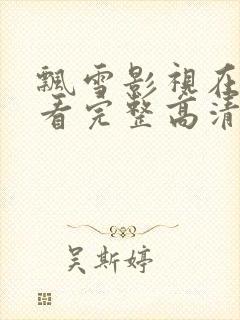 飘雪影視在
看完整高清
吴斯婷